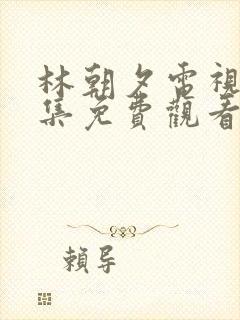 林朝夕電視
集免費觀看
賴导